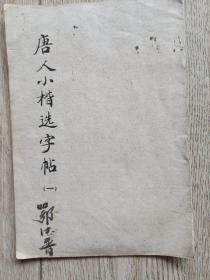 唐人小楷选字帖(一)
鄂